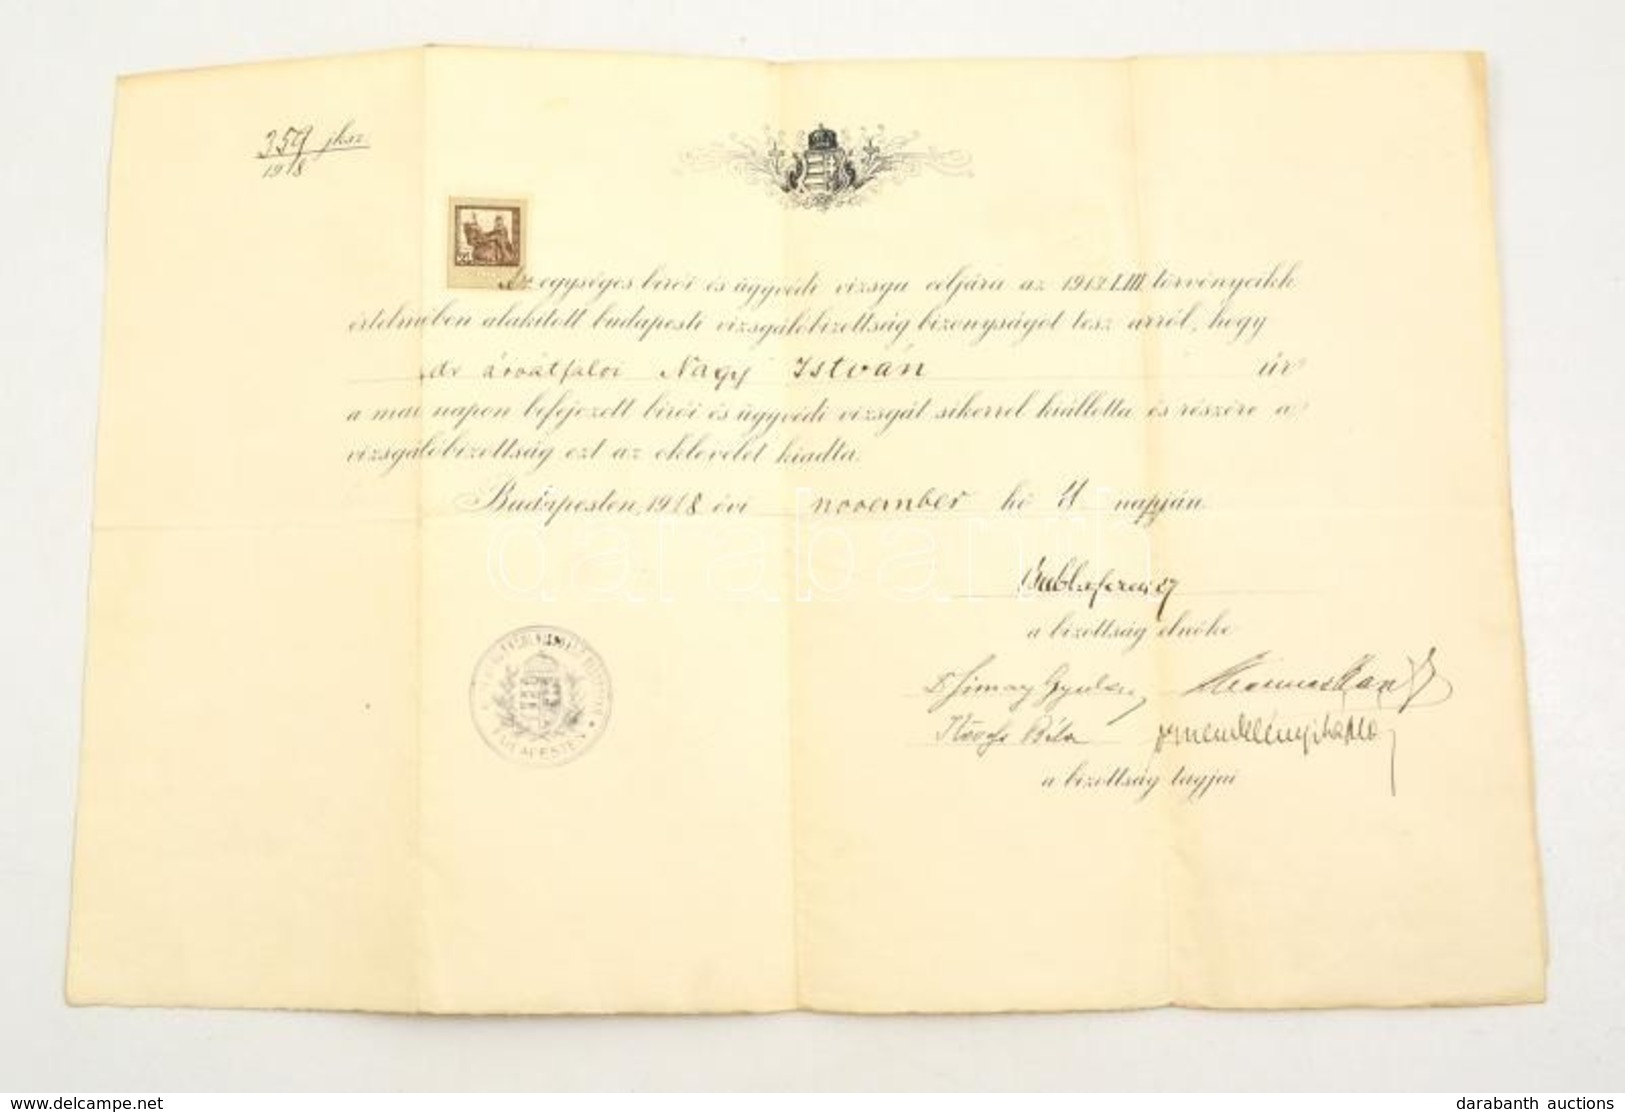 359 jksz.
1918
Az egységes birói és ügyvédi vizsga céljára az 1913. LIII. törvénycikk
értelmében alakitott budapesti vizsgálóbizottság bizonyságot tesz arról, hogy
dr Nagy István úr
a mai napon befejezett birói és ügyvédi vizsgát sikerrel kiállotta és részére a
vizsgálóbizottság ezt az oklevelet kiadta.
Budapesten, 1918 évi november hó napján.
darabanth
a bizottság elnöke
Gyula
Béla
a bizottság tagjai
BUDAPESTEN
delcampe.net
darabanth auctions